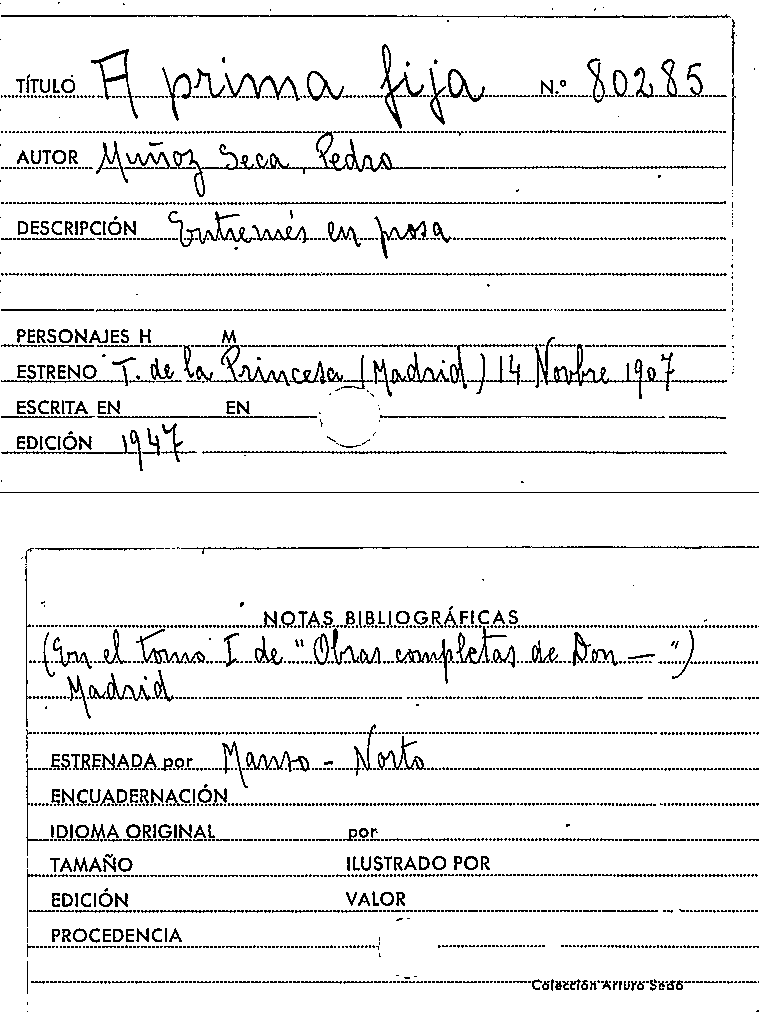 TÍTULO A prima fija N.º 80285
AUTOR Muñoz Seca, Pedro
DESCRIPCIÓN Entremés en prosa
PERSONAJES H M
ESTRENO T. de la Princesa (Madrid) 14 Novbre 1907
ESCRITA EN EN
EDICIÓN 1947
NOTAS BIBLIOGRÁFICAS
(En el tomo I de "Obras completas de Don — ")
Madrid
ESTRENADA por Manso - Norto
ENCUADERNACIÓN
IDIOMA ORIGINAL por
TAMAÑO ILUSTRADO POR
EDICIÓN VALOR
PROCEDENCIA
Colección Arturo Sedó